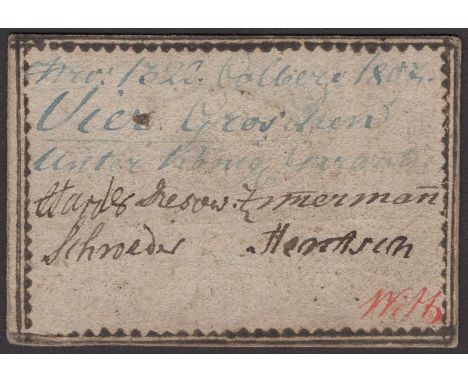 Nro: 1322. Colberg 1807.
Vier Groschen
unter König. Garantie
Dresow. Zimmerman
Schroeder Hentsch